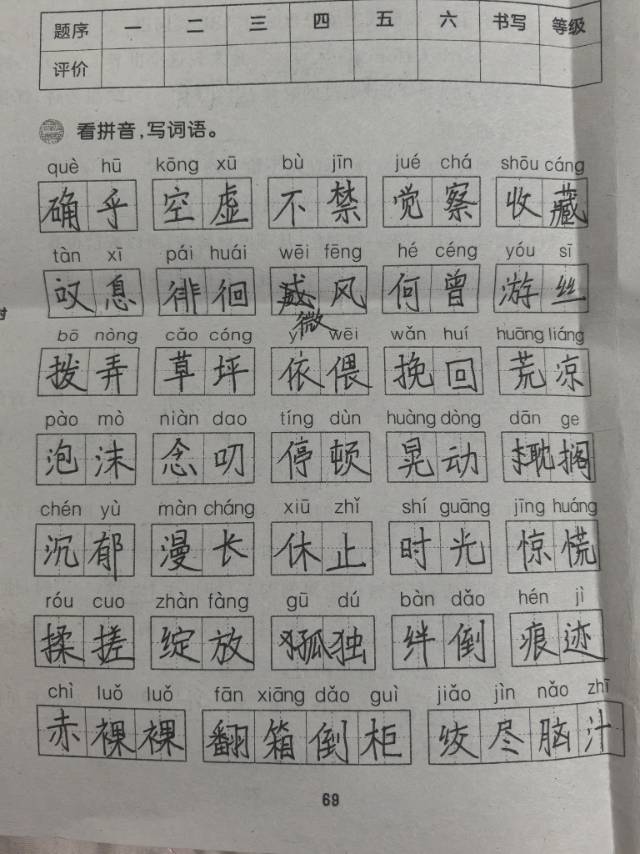 题序 一 二 三 四 五 六 书写 等级
评价
看拼音,写词语。
què hū kōng xū bù jīn jué chá shōu cáng
确乎 空虚 不禁 觉察 收藏
tàn xī pái huái wēi fēng hé céng yóu sī
叹息 徘徊 风 何曾 游丝
微
bō nòng cǎo cóng y wēi wǎn huí huāng liáng
拨弄 草坪 依偎 挽回 荒凉
pào mò niàn dao tíng dùn huàng dòng dān ge
泡沫 念叨 停顿 晃动 搁
chén yù màn cháng xiū zhǐ shí guāng jīng huáng
沉郁 漫长 休止 时光 惊慌
róu cuo zhàn fàng gū dú bàn dǎo hén jì
揉搓 绽放 孤独 绊倒 痕迹
chì luǒ luǒ fān xiāng dǎo guì jiǎo jìn nǎo zhī
赤裸裸 翻箱倒柜 绞尽脑汁
69